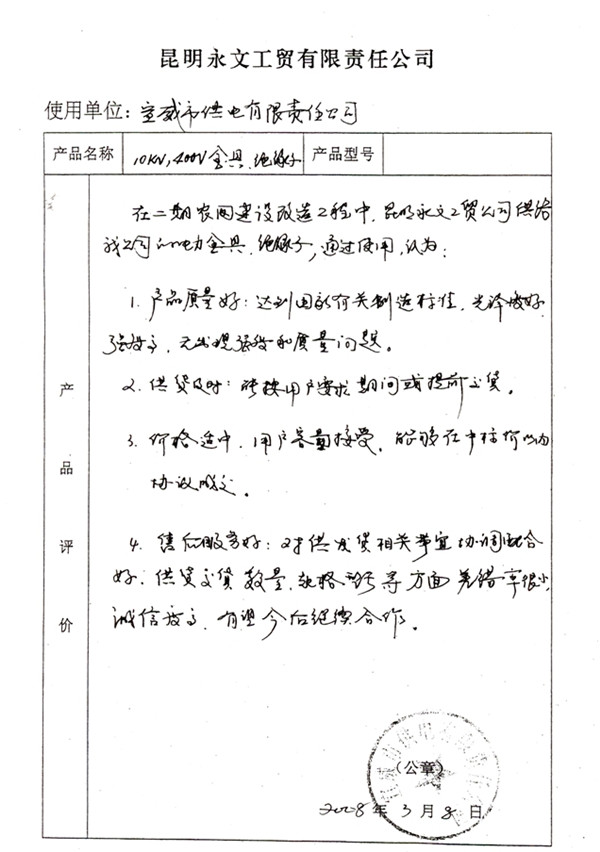 昆明永文工贸有限责任公司
使用单位：宣威市供电有限责任公司
产品名称 10KV,400V金具、绝缘子 产品型号
产品评价
在二期农网建设改造工程中，昆明永文工贸公司供给
我公司的电力金具、绝缘子，通过使用，认为：
1. 产品质量好：达到国家有关制造标准，光泽度好
强度高，无出现强度和质量问题。
2. 供货及时：能按用户要求期间或提前交货。
3. 价格适中，用户容易接受，能够在中标价以内
协议成交。
4. 售后服务好：对供发货相关事宜协调配合
好，供货交货数量、规格型号等方面差错率很小，
诚信度高，有望今后继续合作。
（公章）
2008年3月8日